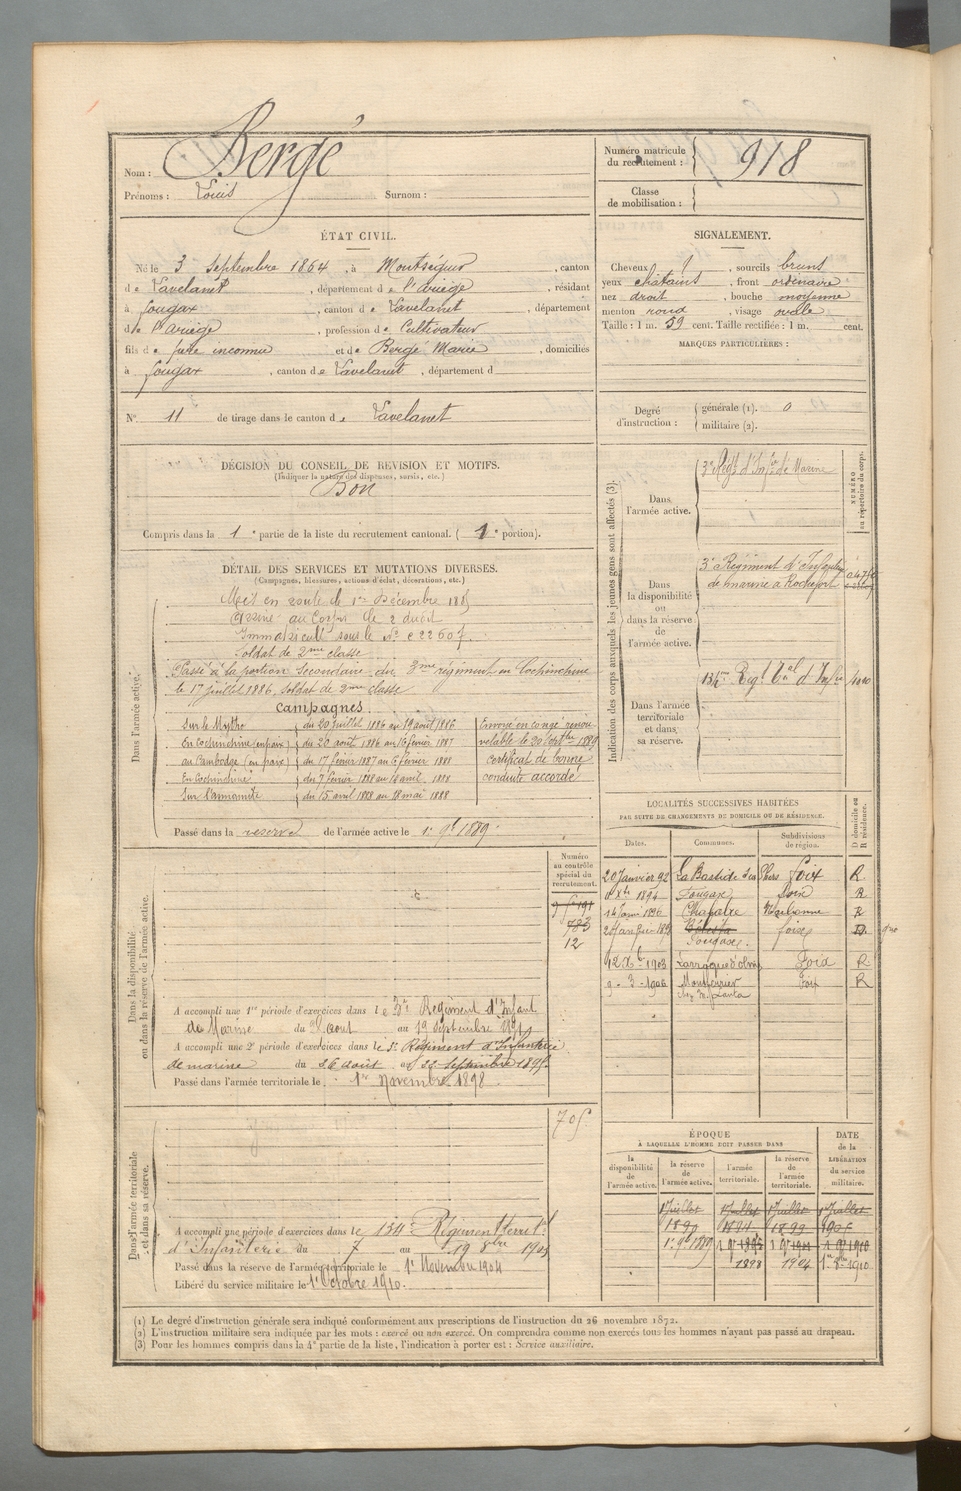 Nom : Bergé
Prénoms : Louis Surnom :
Numéro matricule du recrutement : 918
Classe de mobilisation :
ÉTAT CIVIL.
Né le 3 Septembre 1864, à Montségur, canton
de Lavelanet, département de l'Ariège, résidant
à Fougax, canton de Lavelanet, département
de l'Ariège, profession de Cultivateur
fils de père inconnu et de Bergé Marie, domiciliés
à Fougax, canton de Lavelanet, département d
No 11 de tirage dans le canton de Lavelanet
SIGNALEMENT.
Cheveux , sourcils bruns
yeux chatains, front ordinaire
nez droit, bouche moyenne
menton rond, visage ovale
Taille : 1 m. 59 cent. Taille rectifiée : 1 m. cent.
MARQUES PARTICULIÈRES :
Degré d'instruction : générale (1). 0
militaire (2).
DÉCISION DU CONSEIL DE REVISION ET MOTIFS.
(Indiquer la nature des dispenses, sursis, etc.)
Bon
Compris dans la 1e partie de la liste du recrutement cantonal. (1e portion).
DÉTAIL DES SERVICES ET MUTATIONS DIVERSES.
(Campagnes, blessures, actions d'éclat, décorations, etc.)
Dans l'armée active.
Mis en route le 1er Décembre 1885
Arrivé au Corps le 2 dudit
Immatriculé sous le No c 22507.
Soldat de 2me classe
Passé à la portion Secondaire du 3me régiment en Cochinchine
le 17 juillet 1886, soldat de 2me classe
Campagnes.
Sur le Mytho du 20 juillet 1886 au 19 août 1886
En Cochinchine (en paix) du 20 août 1886 au 16 février 1887
au Cambodge (en paix) du 17 février 1887 au 6 février 1888
En Cochinchine du 7 février 1888 au 14 avril 1888
Sur l'annamite du 15 avril 1888 au 18 mai 1888
Envoyé en congé renouvelable le 20 Septbre 1889
Certificat de bonne
conduite accordé
Passé dans la réserve de l'armée active le 1er 9bre 1889.
Indication des corps auxquels les jeunes gens sont affectés (3).
NUMÉRO au répertoire du corps.
Dans l'armée active.
3e Régt d'Infie de Marine
Dans la disponibilité ou dans la réserve de l'armée active.
3e Régiment d'Infanterie
de marine à Rochefort
Dans l'armée territoriale et dans sa réserve.
134me Régt Tal d'Infie
LOCALITÉS SUCCESSIVES HABITÉES
PAR SUITE DE CHANGEMENTS DE DOMICILE OU DE RÉSIDENCE.
Dates. Communes. Subdivisions de région. D domicile ou R résidence.
20 Janvier 92 La Bastide s/ Lhers Foix R
1894 Fougax Foix R
1896 Narbonne R
Bélesta
Fougax. Foix D.
1903 Larroque d'Olmes Foix R
9-3-1906 Montferrier Foix R
Dans la disponibilité ou dans la réserve de l'armée active.
Numéro au contrôle spécial du recrutement.
783
12
A accompli une 1re période d'exercices dans le 3e Régiment d'Infant
de Marine du août au 19 Septembre
A accompli une 2e période d'exercices dans le 3e Régiment d'Infanterie
de marine du 26 août au 22 Septembre 1895.
Passé dans l'armée territoriale le 1er Novembre 1898.
Dans l'armée territoriale et dans sa réserve.
705
A accompli une période d'exercices dans le 134e Régiment territ
d'Infanterie du 7 au 19 8bre 1903
Passé dans la réserve de l'armée territoriale le 1er Novembre 1904
Libéré du service militaire le 1er Octobre 1910.
ÉPOQUE
À LAQUELLE L'HOMME DOIT PASSER DANS
la disponibilité de l'armée active. la réserve de l'armée active. l'armée territoriale. la réserve de l'armée territoriale.
DATE de la LIBÉRATION du service militaire.
1 Juillet 1 Juillet 1 Juillet 1 Juillet
1890 1894 1899
1er 9bre 1889
1898 1904 1910
(1) Le degré d'instruction générale sera indiqué conformément aux prescriptions de l'instruction du 26 novembre 1872.
(2) L'instruction militaire sera indiquée par les mots : exercé ou non exercé. On comprendra comme non exercés tous les hommes n'ayant pas passé au drapeau.
(3) Pour les hommes compris dans la 4e partie de la liste, l'indication à porter est : Service auxiliaire.